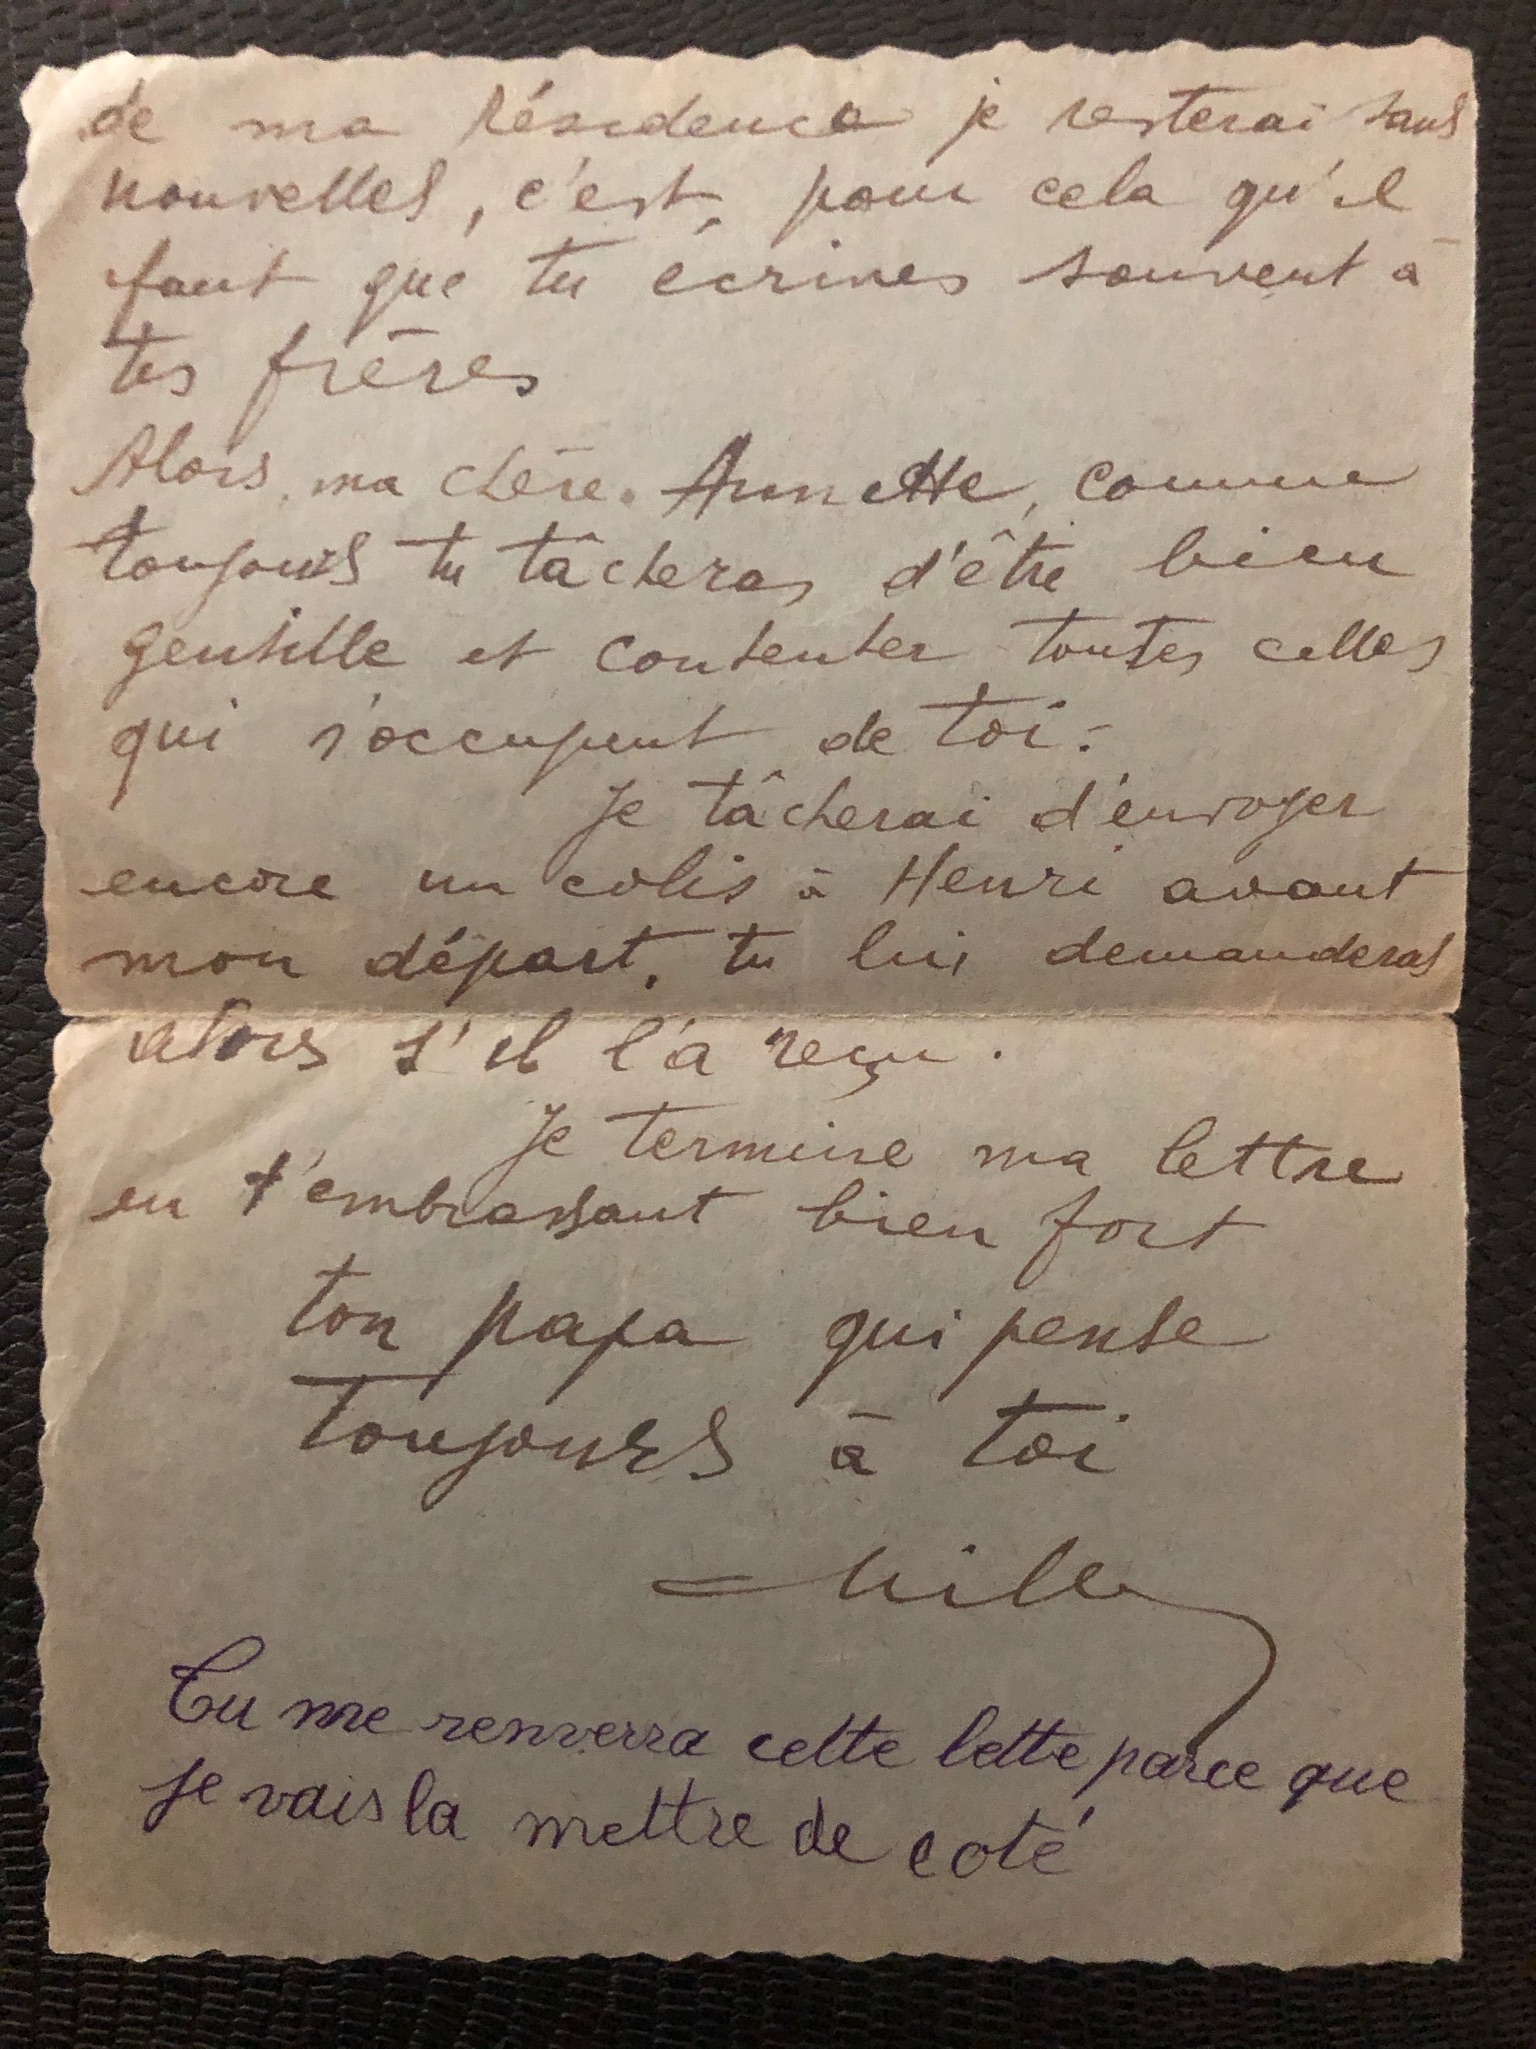 de ma résidence je resterai sans
nouvelles, c'est, pour cela qu'il
faut que tu écrives souvent à
tes frères
Alors, ma chère. Annette, comme
toujours tu tâcheras d'être bien
gentille et contenter toutes celles
qui s'occupent de toi.
Je tâcherai d'envoyer
encore un colis à Henri avant
mon départ, tu lui demanderas
alors s'il l'a reçu.
Je termine ma lettre
en t'embrassant bien fort
ton papa qui pense
toujours à toi
Tu me renverra cette lette parce que
je vais la mettre de coté